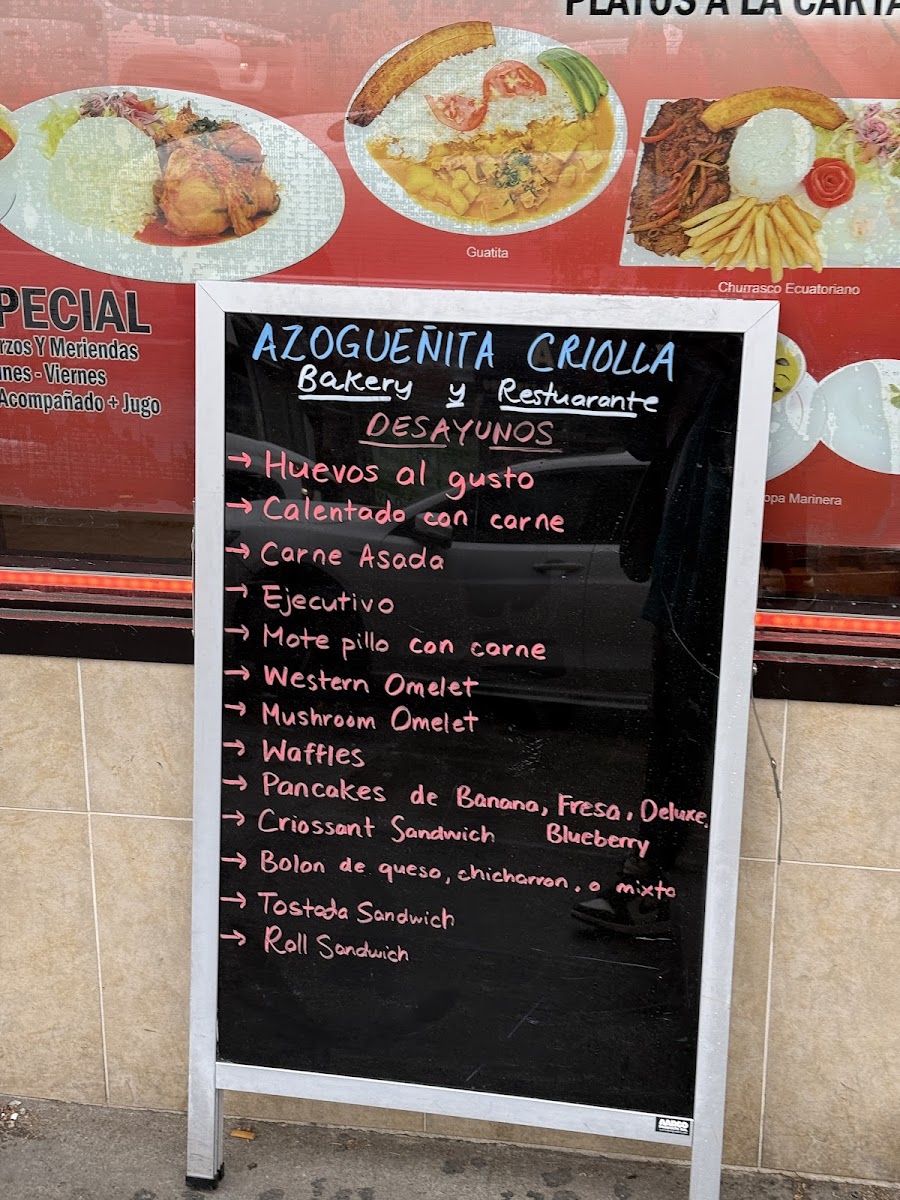 PLATOS A LA CARTA
Guatita
Churrasco Ecuatoriano
PECIAL
rzos Y Meriendas
nes - Viernes
Acompañado + Jugo
opa Marinera
AZOGUEÑITA CRIOLLA
Bakery y Restuarante
DESAYUNOS
→ Huevos al gusto
→ Calentado con carne
→ Carne Asada
→ Ejecutivo
→ Mote pillo con carne
→ Western Omelet
→ Mushroom Omelet
→ Waffles
→ Pancakes de Banana, Fresa, Deluxe,
Blueberry
→ Criossant Sandwich
→ Bolon de queso, chicharron, o mixto
→ Tostada Sandwich
→ Roll Sandwich